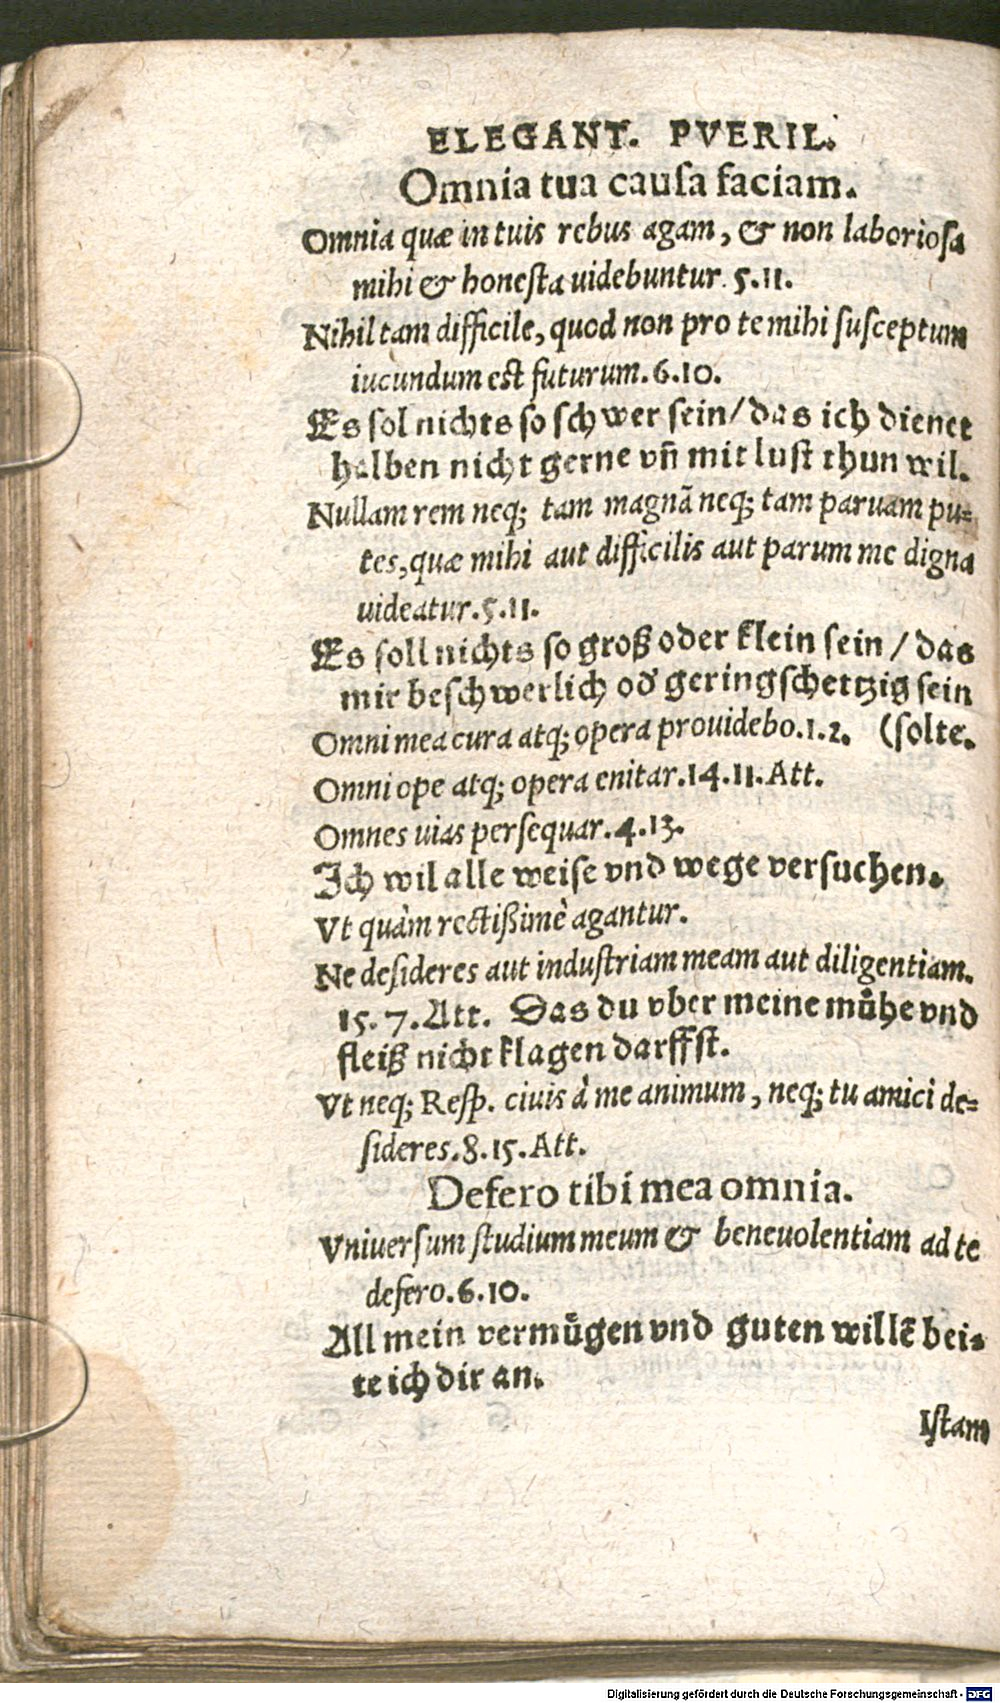 ELEGANT. PVERIL.
Omnia tua cauſa faciam.
Omnia quæ in tuis rebus agam, & non laborioſa
mihi & honeſta uidebuntur. 5.11.
Nihil tam difficile, quod non pro te mihi ſuſceptum
iucundum eſt futurum. 6.10.
Es ſol nichts ſo ſchwer ſein/ das ich dienet
halben nicht gerne vñ mit luſt thun wil.
Nullam rem neq; tam magnã neq; tam paruam pu=
tes, quæ mihi aut difficilis aut parum me digna
uideatur. 5.11.
Es ſoll nichts ſo groß oder klein ſein / das
mir beſchwerlich od' geringſchetzig ſein
Omni mea cura atq; opera prouidebo. 1.2. (ſolte.
Omni ope atq; opera enitar. 14.11. Att.
Omnes uias perſequar. 4.13.
Ich wil alle weiſe vnd wege verſuchen.
Vt quàm rectißimè agantur.
Ne deſideres aut induſtriam meam aut diligentiam.
15.7. Att. Das du vber meine muͤhe vnd
fleiß nicht klagen darffſt.
Vt neq; Reſp. ciuis à me animum, neq; tu amici de=
ſideres. 8.15. Att.
Defero tibi mea omnia.
Vniuerſum ſtudium meum & beneuolentiam ad te
defero. 6.10.
All mein vermuͤgen vnd guten willẽ bei=
te ich dir an.
Iſtam
Digitalisierung gefördert durch die Deutsche Forschungsgemeinschaft - DFG